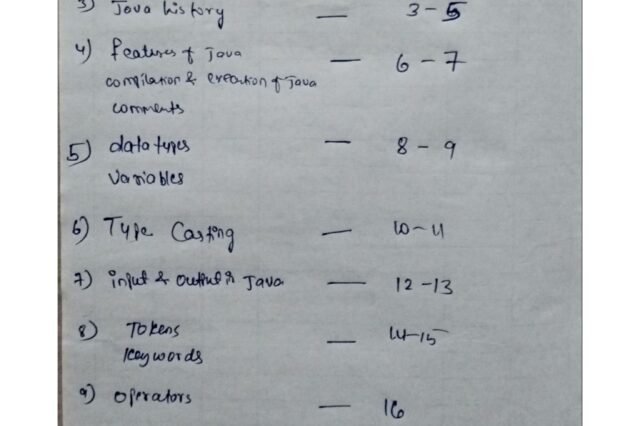 3) Java history — 3 - 5
4) features of Java — 6 - 7
compilation & execution of Java
comments
5) data types — 8 - 9
variables
6) Type Casting — 10 - 11
7) input & output in Java — 12 - 13
8) Tokens — 14 - 15
keywords
9) operators — 16